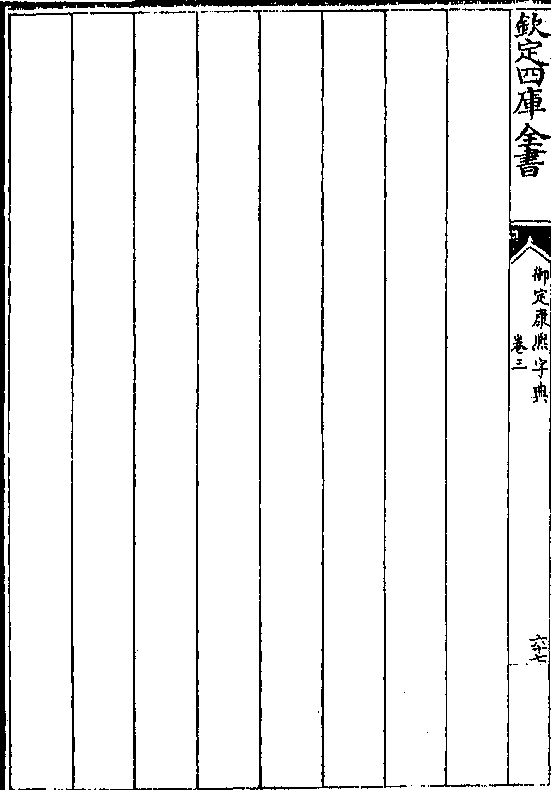 欽定四庫全書
御定康熙字典
卷三
六十七